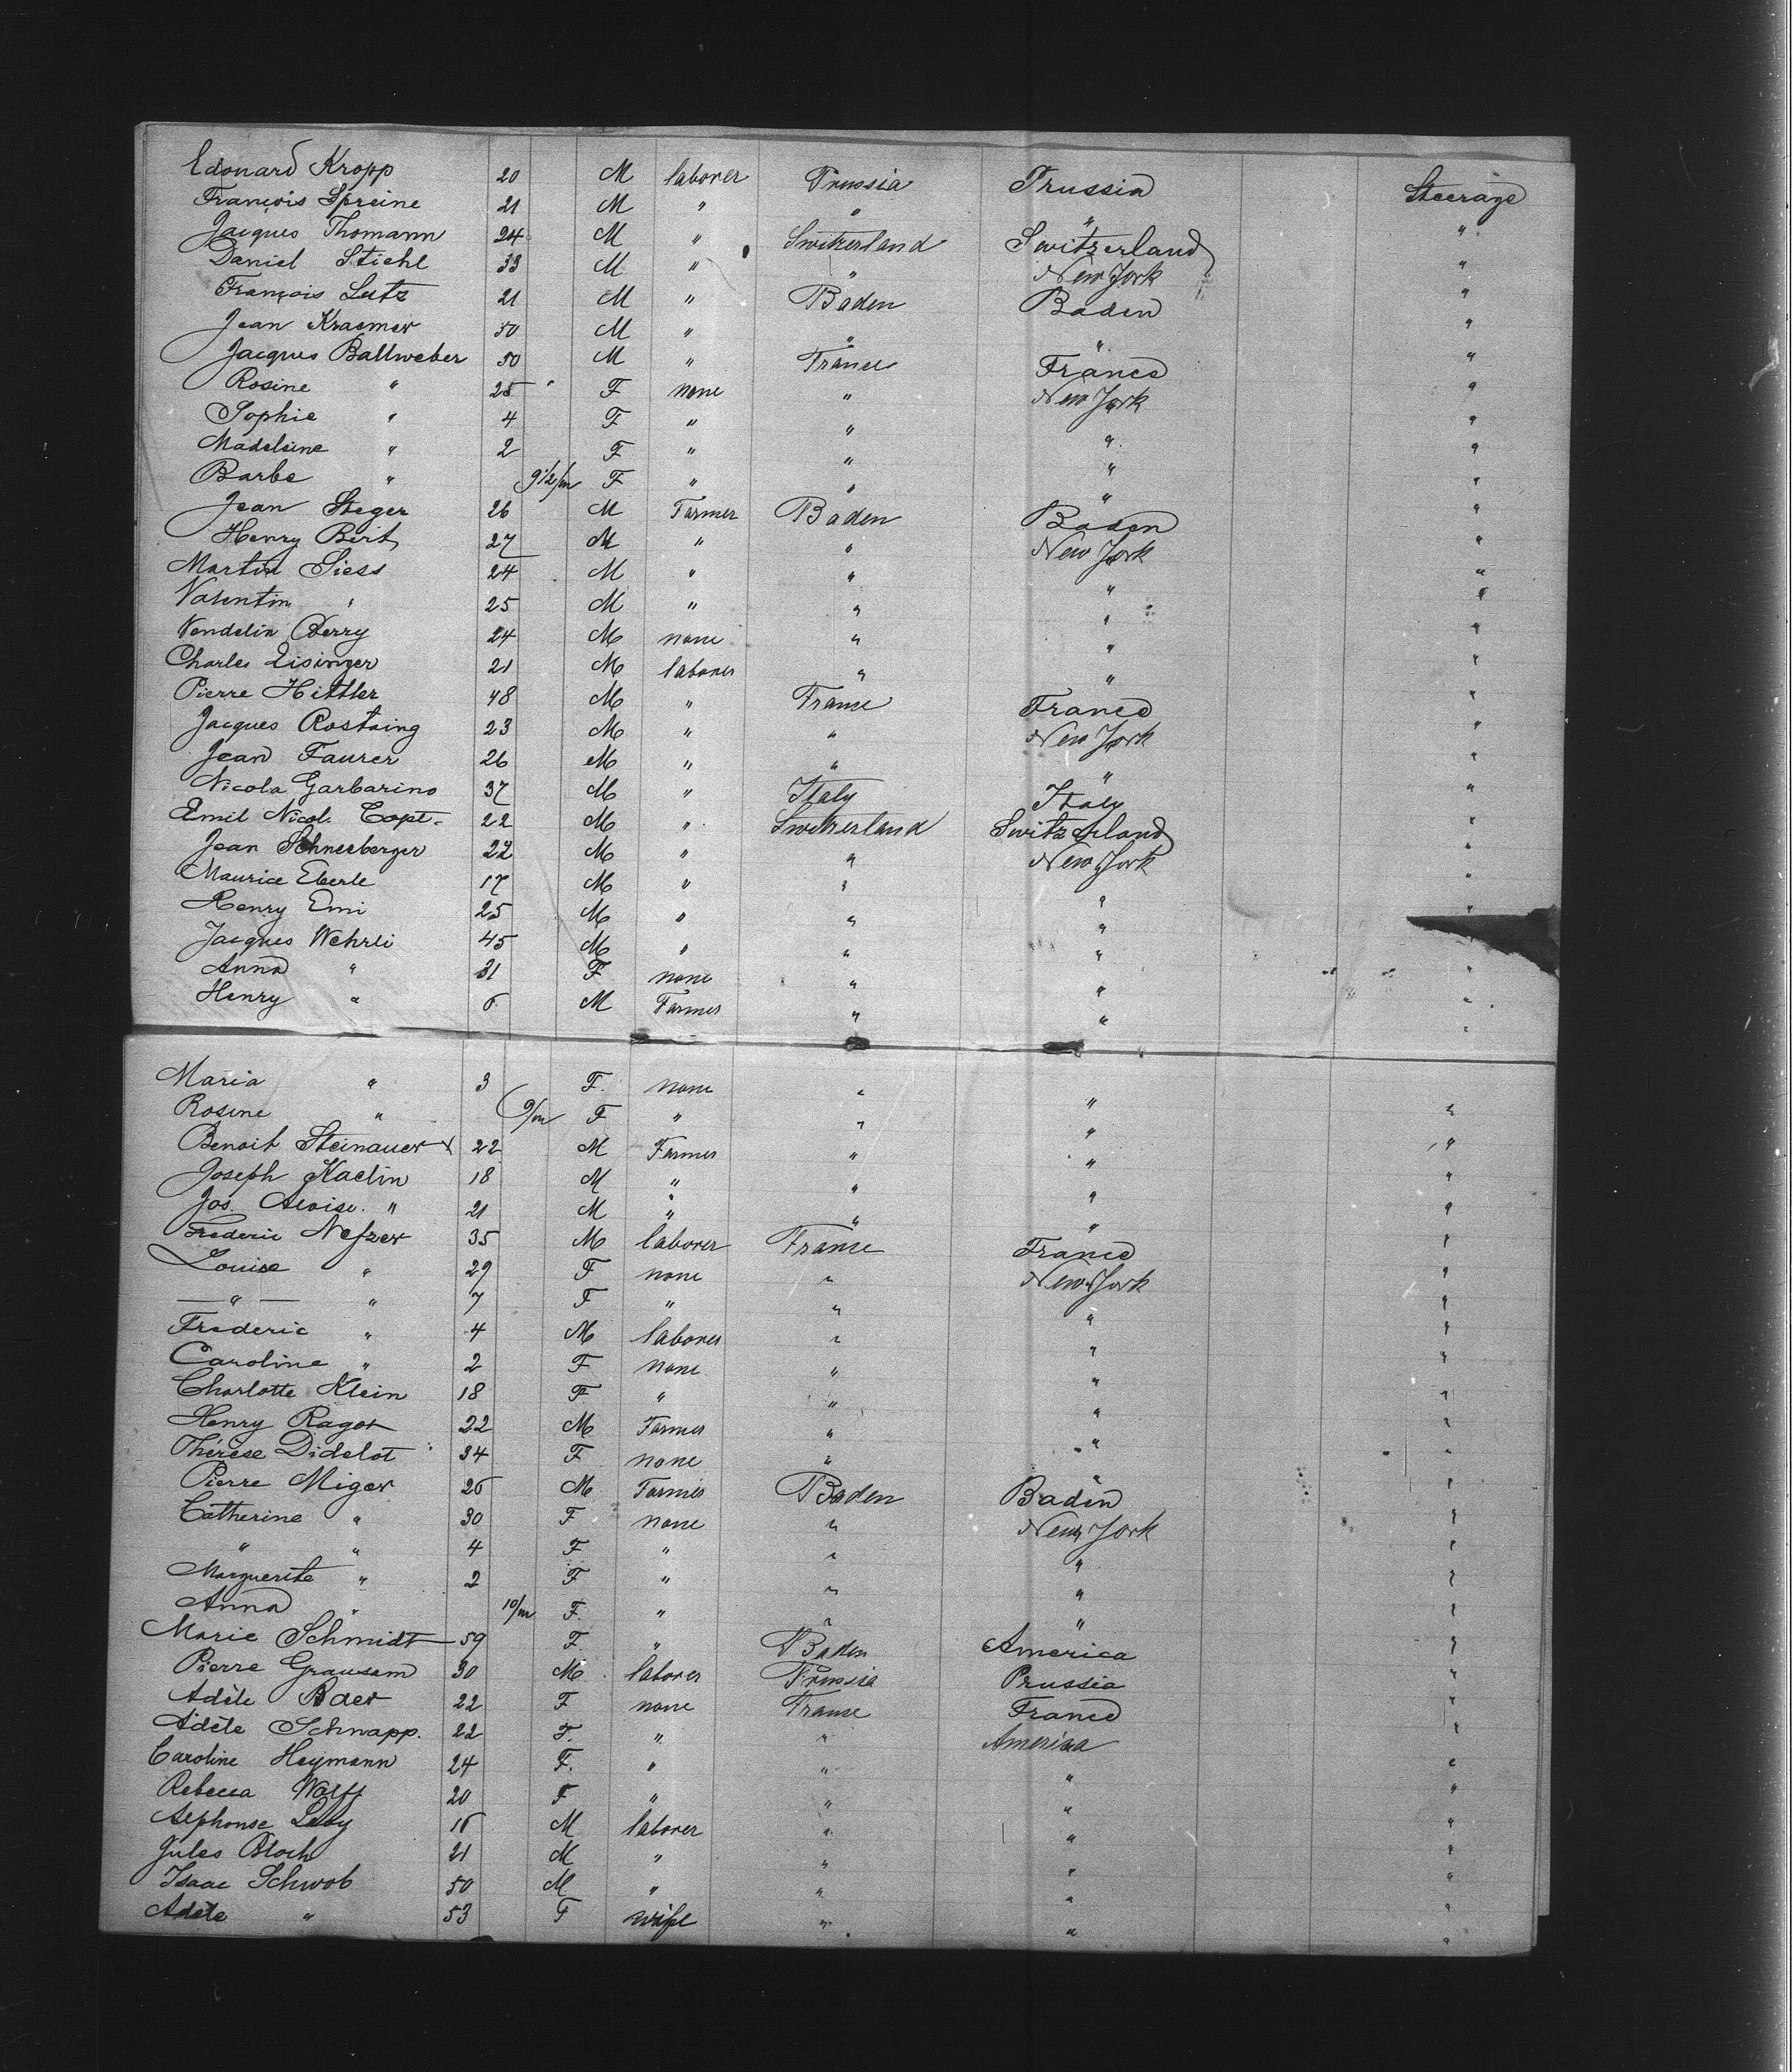 Edouard Kropp 20 M laborer Prussia Prussia Steerage
François Spreine 21 M " " " "
Jacques Thomann 24 M " Switzerland Switzerland "
Daniel Stiehl 33 M " " New York "
François Lutz 21 M " Baden Baden "
Jean Kraemer 30 M " " " "
Jacques Ballweber 50 M " France France "
Rosine " 25 F none " New York "
Sophie " 4 F " " " "
Madeleine " 2 F " " " "
Barbe " 9 1/2/m F " " " "
Jean Steger 26 M Farmer Baden Baden "
Henry Birt 27 M " " New York "
Martin Siess 24 M " " " "
Valentin " 25 M " " " "
Vendelin Berry 24 M none " " "
Charles Eisinger 21 M laborer " " "
Pierre Hittler 48 M " France France "
Jacques Rostaing 23 M " " New York "
Jean Faurer 26 M " " " "
Nicola Garbarino 37 M " Italy Italy "
Emil Nicol. Copt. 22 M " Switzerland Switzerland "
Jean Schneeberger 22 M " " New York "
Maurice Eberle 17 M " " " "
Henry Emi 25 M " " " "
Jacques Wehrli 45 M " " " "
Anna " 31 F none " " "
Henry " 6 M Farmer " " "
Maria " 3 F. none " " "
Rosine " 9/m F " " " "
Benoit Steinauer 22 M Farmer " " "
Joseph Kaelin 18 M " " " "
Jos. Aloise. " 21 M " " " "
Frederic Nefzer 35 M laborer France France "
Louise " 29 F none " New York "
— " — " 7 F " " " "
Frederic " 4 M laborer " " "
Caroline " 2 F none " " "
Charlotte Klein 18 F " " " "
Henry Ragot 22 M Farmer " " "
Thérèse Didelot 34 F none " " "
Pierre Miger 26 M Farmer Baden Baden "
Catherine " 30 F none " New York "
" " 4 F " " " "
Marguerite " 2 F " " " "
Anna " 10/m F. " " " "
Marie Schmidt 59 F. " Baden America "
Pierre Grausam 30 M laborer Prussia Prussia "
Adèle Baer 22 F none France France "
Adèle Schnapp. 22 F. " " America "
Caroline Heymann 24 F. " " " "
Rebecca Wolff 20 F " " " "
Alphonse Levy 16 M laborer " " "
Jules Bloch 21 M " " " "
Isaac Schwob 50 M " " " "
Adèle " 53 F wife " " "